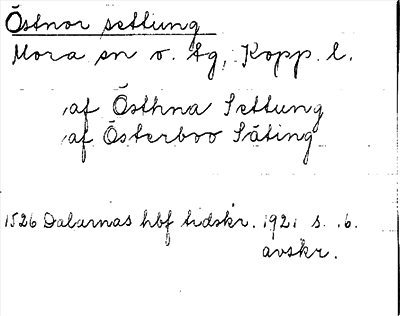 Östnor settung
Mora sn o. tg, Kopp. l.
af Östhna Settung
af Österboo Säting
1526 Dalarnas hbf tidskr. 1921 s. 6.
avskr.